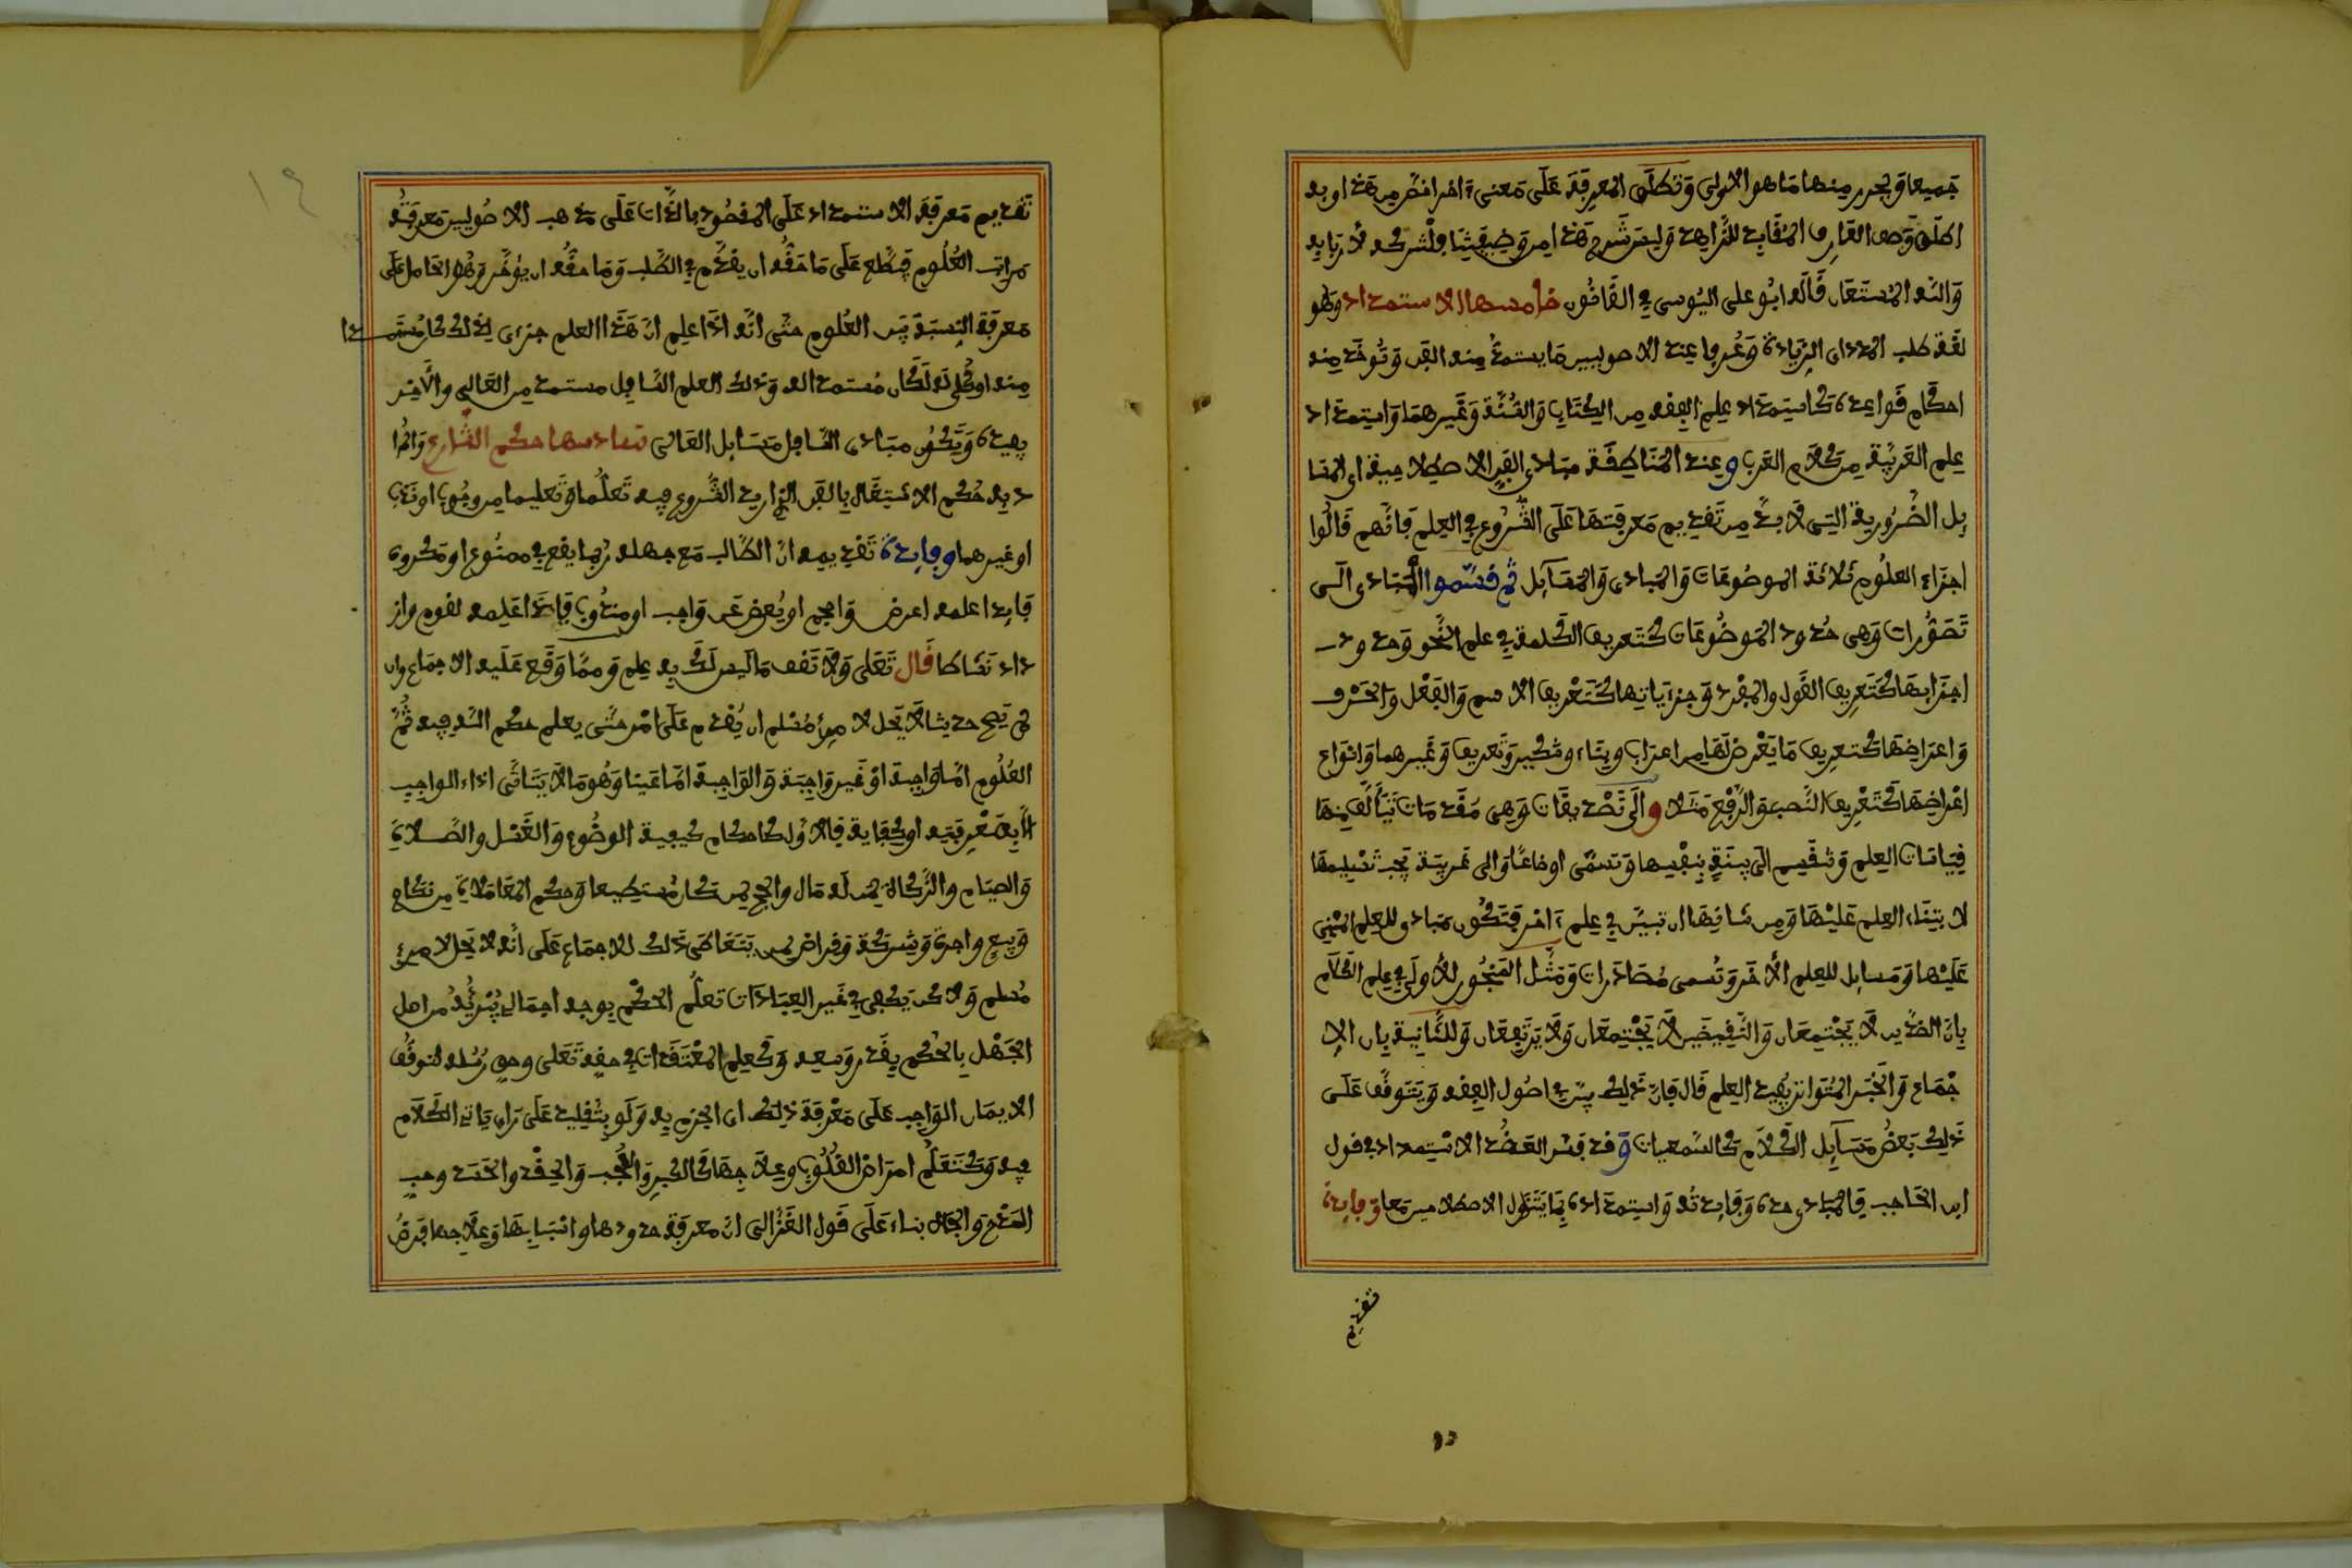 جميعا ويحرر منها ما هو الاولى وتطلق المعرفة على معنى ءاخر اخص من هذا وبه
اطلق وصف العارف المفايد للزاهد وليس شرح هذا من وظيفتنا فلنتركه لأربابه
والله المستعان قاله ابو علي اليوسي في القانون خامسها الاستمداد وهو
لغة طلب المدد اي الزيادة وعرفا عند الاصوليين ما يستمد منه الفن وتوخذ منه
احكام قواعده كاستمداد علم الفقه من الكتاب والسنة وغيرهما واستمداد
علم العربية من كلام العرب وعند المناطقة مبادي الفن الاصطلاحية اي المسا
يل الضرورية التي لا بد من تقديم معرفتها على الشروع في العلم فانهم قالوا
اجزاء العلوم ثلاثة الموضوعات والمبادي والمسآيل ثم قسموا المبادي الى
تصورات وهي حدود الموضوعات كتعريف الكلمة في علم النحو وحدود
اجزايها كتعريف القول والمفرد وجزءياتها كتعريف الاسم والفعل والحرف
واعراضها كتعريف ما يعرض لها من اعراب وبناء وتنكير وتعريف وغيرهما وانواع
اعراضها كتعريف النصب والرفع مثلا والى تصديقات وهي مقدمات تتألف منها
قياسات العلم وتنقسم الى بينة بنفسها وتسمى اوضاعا والى غير بينة يجب تسليمها
لابتناء العلم عليها ومن شانها ان تبين في علم ءاخر فتكون مبادي للعلم المبني
عليها ومسايل للعلم الأخر وتسمى مصادرات ومثل المنجور للأولى في علم الكلام
بان الضدين لا يجتمعان والنقيضين لا يجتمعان ولا يرتفعان وللثانية بان الا
جماع والخبر المتواتر يفيد العلم قال فان ذلك يبين في اصول الفقه ويتوقف على
ذلك بعض مسآيل الكلام كالسمعيات وقد فسر العضد الاستمداد في قول
ابن الحاجب فالمبادي حده وفايدته واستمداده بما يتناول الاصطلاحين معا وفايدة
تقديم
تقديم معرفة الاستمداد على المقصود بالذات على مذهب الاصوليين معرفته
مراتب العلوم فيطلع على ما حقه ان يقدم في الطلب وما حقه ان يوخر وهو الحامل على
معرفة النسبة بين العلوم حتى انه اذا علم ان هذا العلم جزءي لذلك كان مستمدا
منه او كلي له لكان مستمدا له وذلك العلم السافل مستمد من العالي والأخير
يفيده وتكون مبادي السافل مسايل العالي سادسها حكم الشارع والمرا
د به حكم الاشتغال بالفن الذي اريد الشروع فيه تعلما وتعليما من وجوب او ندب
او غيرهما وفايدة تقديمه ان الطالب مع جهله ربما يقع في ممنوع او مكروه
فاذا علمه اعرض واحجم او يعرض عن واجب او مندوب فاذا علمه لقوم واز
داد نشاطا قال تعلى ولا تقف ما ليس لك به علم ومما وقع عليه الاجماع وان
لم يصح حديثا لا يحل لامرئ مسلم ان يقدم على امر حتى يعلم حكم الله فيه ثم
العلوم اما واجبة او غير واجبة والواجبة اما عينا وهو ما لا يتاتى اداء الواجب
الا بمعرفته او كفاية فالاول كاحكام كيفية الوضوء والغسل والصلاة
والصيام والزكاة لمن له مال والحج لمن كان مستطيعا وحكم المعاملات من نكاح
وبيع واجرة وشركة وقراض لمن يتعاطى ذلك للاجماع على انه لا يحل لامرئ
مسلم ولاكن يكفي في غير العبادات تعلم الحكم بوجه اجمالي يبرئه من اصل
الجهل بالحكم بقدر وسعه وكعلم المعتقدات في حقه تعلى وحق رسله لتوقف
الايمان الواجب على معرفة ذلك اي الجزم به ولو بتقليد على راي ياتي الكلام
فيه وكتعلم امراض القلوب وعلاجها كالكبر والعجب والحقد والحسد وحب
المدح والجاه بناء على قول الغزالي ان معرفة حدودها واسبابها وعلاجها فرض